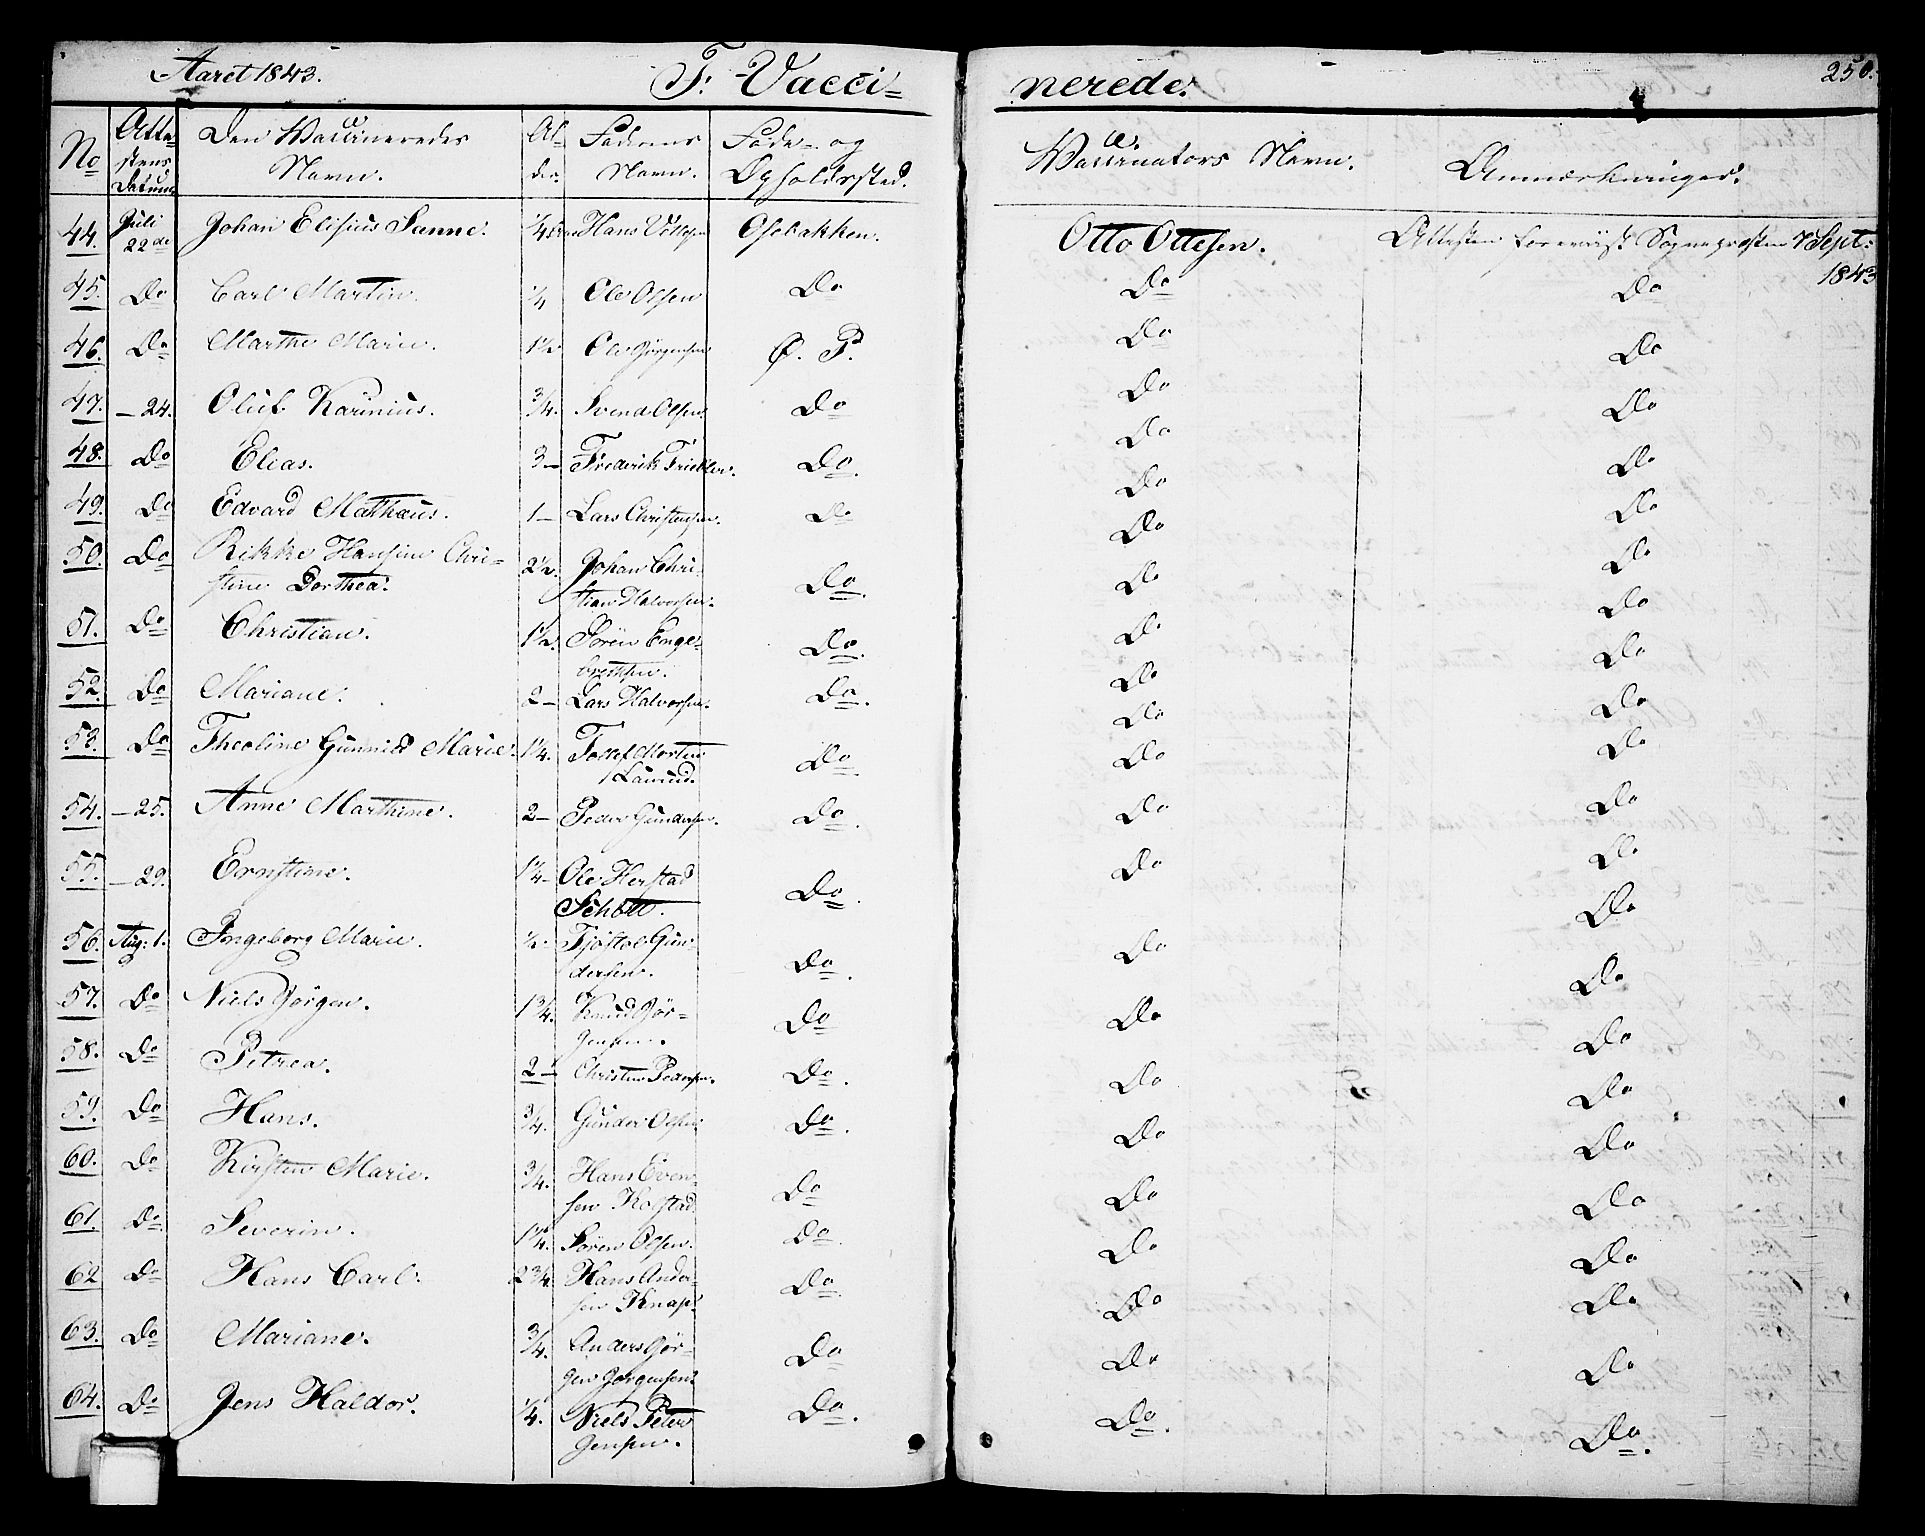 Aaret 1843. F. Vacci- nerede. 250.
No Attestens Datum Den Vaccineredes Navn. Alder. Faderens Navn. Føde- og Opholdssted. Vaccinators Navn. Anmærkninger.
44. Juli 22de Johan Elisius Sanne. 1/4 Hans Osebakken. Otto Ottesen. Attesten foreviist Sognepræsten 7 Sept: 1843
45. Do Carl Martin. 1/4 Ole Olsen Do Do Do
46. Do Marthe Marie. 1 1/2 Ole Jørgensen Ø. P. Do Do
47. –24. Oluf Karinius. 3/4. Svend Olsen. Do Do Do
48. Do Elias. 3– Frederik Do. Do Do
49. Do Edvard Mathæus. 1– Lars Christensen. Do Do Do
50. Do Rikke Hansine Chri-
stine Dorthea. 2 1/2. Johan Chri-
stian Halvorsen. Do. Do Do
51. Do Christian. 1 1/2. Sören Enge-
bretsen. Do. Do Do
52. Do Mariane. 2– Lars Halvorsen. Do. Do Do
53. Do Theoline Gunnild Marie. 1 1/4. Tollef Morten
Laurud. Do. Do Do
54. –25. Anne Marthine. 2– Peder Gundersen. Do. Do Do
55. –29. Ernstine. 1 1/4– Ole Herstad
Schött. Do. Do Do
56. Aug: 1. Ingeborg Marie. 1/2. Tjöstol Gun-
dersen. Do. Do Do
57. Do Niels Jørgen. 1 3/4. Knud Jör-
gensen. Do Do Do
58. Do Petrea. 2– Christen Pedersen. Do. Do Do
59. Do Hans. 3/4. Gunder Olsen Do. Do Do
60. Do Kirsten Marie. 3/4. Hans Even-
sen Kolstad Do Do Do
61. Do Severin. 1 1/4. Sören Olsen. Do. Do Do
62 Do Hans Carl. 2 3/4. Hans Ander-
sen Knap. Do. Do Do
63. Do Mariane. 3/4. Anders Jör-
gen Jørgensen. Do Do Do
64. Do Jens Haldor. 1/4. Niels Peter
Jensen. Do. Do. Do.